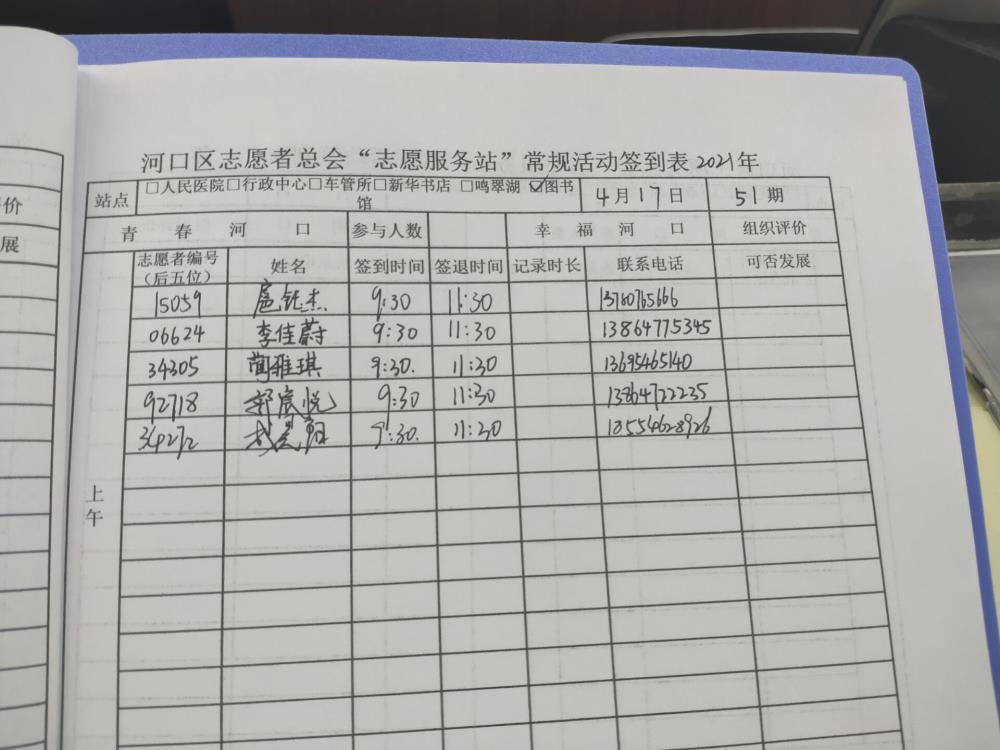 河口区志愿者总会“志愿服务站”常规活动签到表 2021年
站点 □人民医院□行政中心□车管所□新华书店 □鸣翠湖 ☑图书馆 4月17日 51期
青春河口 参与人数 幸福河口 组织评价
志愿者编号（后五位） 姓名 签到时间 签退时间 记录时长 联系电话 可否发展
15059 扈钰杰 9:30 11:30 13780765666
06624 李佳蔚 9:30 11:30 13864775345
34305 蔺雅琪 9:30. 11:30 13695465140
92718 郑宸悦 9:30 11:30 13864722235
34272 9:30. 11:30 18554628926
上午
价
展